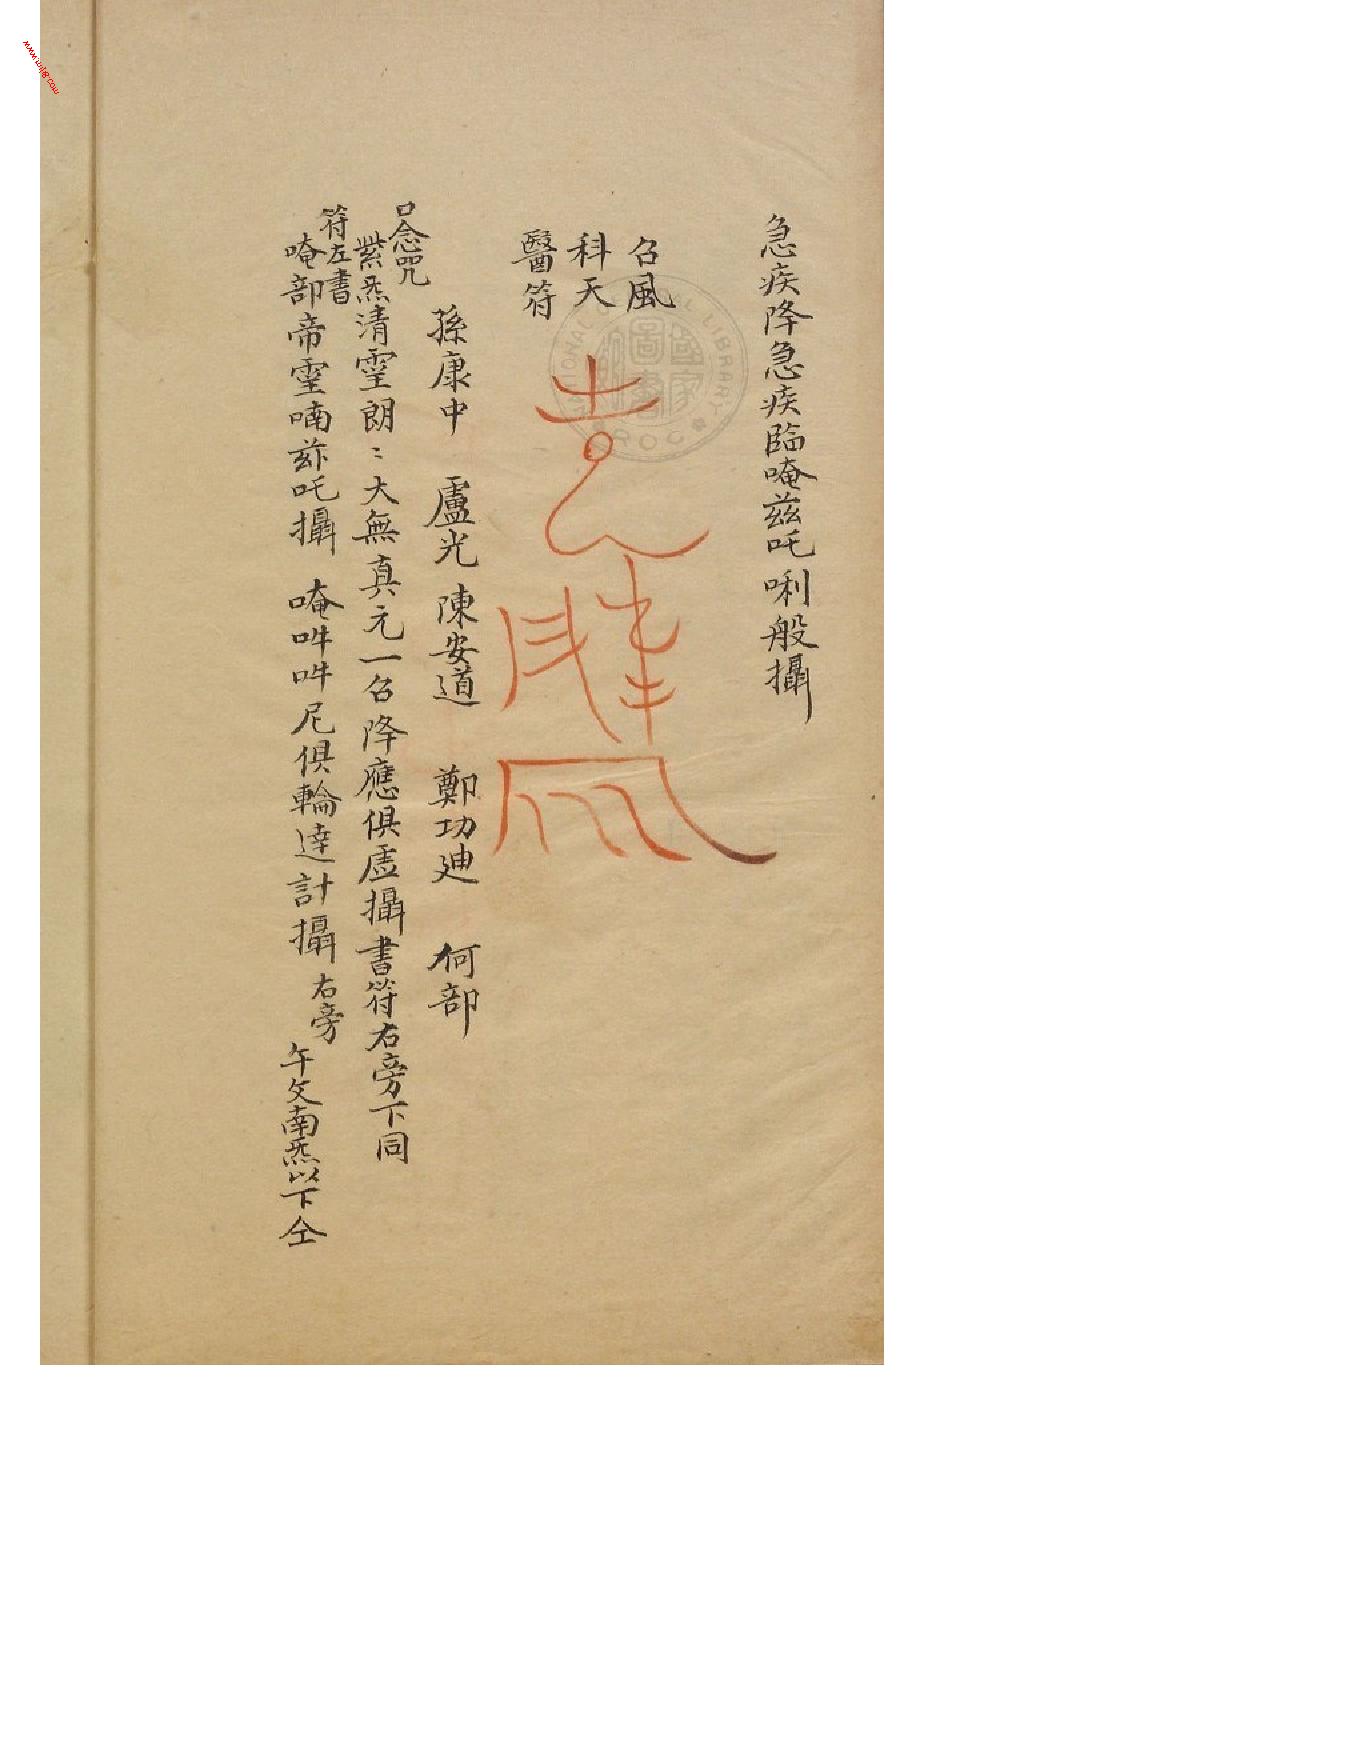 急疾降急疾臨唵茲吒唎般攝
召風
科天
醫符
孫康中 盧光 陳安道 鄭功廸 何部
口念咒
紫炁清霊朗〻大無真元一召降應俱虛攝書符右旁下同
符左書
唵部帝霊喃茲吒攝 唵吽吽尼俱輪達計攝
右旁
午文南炁以下仝
NATIONAL LIBRARY
ROC
國家圖書